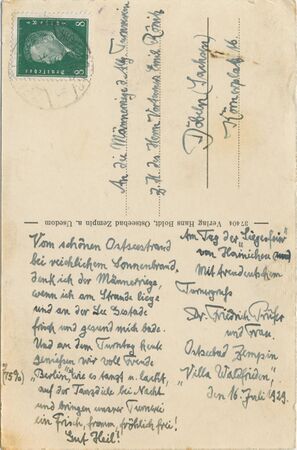 8
8
Deutsches Reich
An die Männerriege d. Allg. Turnverein
z. H. des Herrn Vorturner Emil
Döbeln (Sachsen)
Körnerplatz 16.
37404 Verlag Hans Boldt, Ostseebad Zempin a. Usedom
Vom schönen Ostseestrand
bei reichlichem Sonnenbrand,
denk ich der Männerriege,
wenn ich am Strande liege
und an der See Gestade
frisch und gesund mich bade.
Und an dem Turntag heut
genießen wir voll Freude
(75%) „Berlin“, wie es tanzt u. lacht,
auf der Tanzdiele bei Nacht
und bringen unsrer Turnerei
ein Frisch, fromm, fröhlich frei!
Gut Heil!
Am Tag der Siegesfeier
von Hainichen
Mit treudeutschem
Turnergruß
Dr. Friedrich
und Frau.
Ostseebad Zempin
„Villa Waldfrieden“,
den 16. Juli 1929.